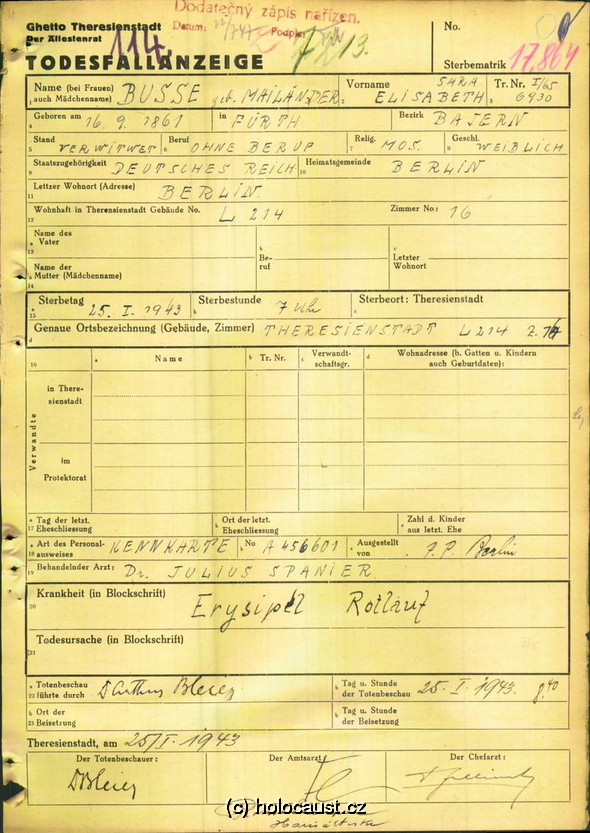 Dodatečný zápis nařízen.
Datum: Podpis:
Ghetto Theresienstadt
Der Ältestenrat
114.
13.
No.
TODESFALLANZEIGE
Sterbematrik 17.864
Name (bei Frauen) auch Mädchenname) BUSSE geb. MAILÄNDER
Vorname SARA ELISABETH
Tr. Nr. I/65 6930
Geboren am 16. 9. 1861 in FÜRTH Bezirk BAJERN
Stand VERWITWET Beruf OHNE BERUF Relig. MOS. Geschl. WEIBLICH
Staatszugehörigkeit DEUTSCHES REICH Heimatsgemeinde BERLIN
Letzter Wohnort (Adresse) BERLIN.
Wohnhaft in Theresienstadt Gebäude No. L 214 Zimmer No: 16
Name des Vater Beruf Letzter Wohnort
Name der Mutter (Mädchenname)
Sterbetag 25. I. 1943 Sterbestunde 7 Uhr Sterbeort: Theresienstadt
Genaue Ortsbezeichnung (Gebäude, Zimmer) THERESIENSTADT L 214
16 Name Tr. Nr. Verwandtschaftsgr. Wohnadresse (b. Gatten u. Kindern auch Geburtdaten):
Verwandte
in Theresienstadt
im Protektorat
Tag der letzt. Eheschliessung Ort der letzt. Eheschliessung Zahl d. Kinder aus letzt. Ehe
Art des Personalausweises KENNKARTE No A 456601 Ausgestellt von P.P. Berlin
Behandelnder Arzt: Dr. JULIUS SPANIER
Krankheit (in Blockschrift) Erysipel Rotlauf
Todesursache (in Blockschrift)
Totenbeschau führte durch Dr Arthur Bleier Tag u. Stunde der Totenbeschau 25. I. 1943. 8.40
Ort der Beisetzung Tag u. Stunde der Beisetzung
Theresienstadt, am 25/I. 1943
Der Totenbeschauer: Der Amtsarzt: Der Chefarzt:
Dr Bleier
(c) holocaust.cz